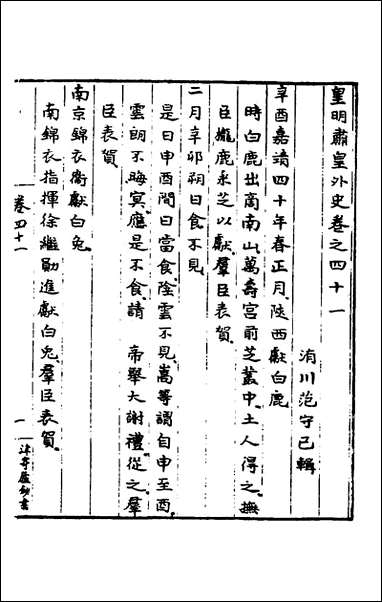 皇明肅皇外史卷之四十一
洧川范守己輯
辛酉嘉靖四十年春正月陝西獻白鹿
時白鹿出商南山萬壽宮前芝叢中土人得之撫
臣攏鹿永芝以獻羣臣表賀
二月辛卯朔日食不見
是日申酉間日當食陰雲不見嵩等謂自申至酉
雲朗不晦冥應是不食請　帝舉大謝禮從之羣
臣表賀
南京錦衣衛獻白兔
南錦衣指揮徐繼勛進獻白兔羣臣表賀
卷四十一
一
津寄廬鈔書